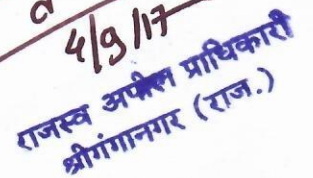 4/9/17
राजस्व अपील प्राधिकारी
श्रीगंगानगर (राज.)